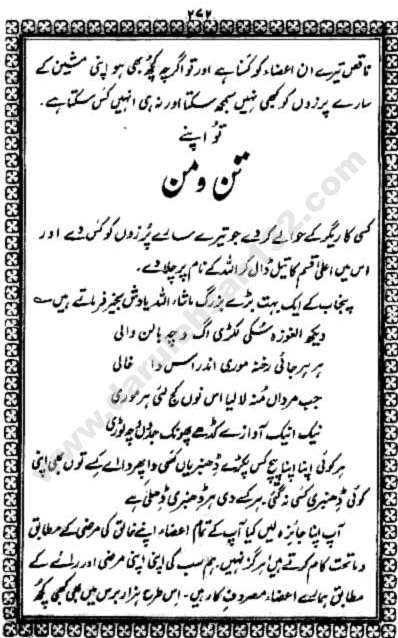 ۲۷۲
ناقص تیرے ان اعضاء کو کسنا ہے اور تو اگرچہ کچھ بھی ہو اپنی مشین کے
سارے پرزوں کو کبھی نہیں سمجھ سکتا اور نہ ہی انہیں کس سکتا ہے۔
تو اپنے
تن و من
کسی کاریگر کے حوالے کر دے جو تیرے سارے پرزوں کو کس دے اور
اس میں اعلیٰ قسم کا تیل ڈال کر اللہ کے نام پر چلا دے۔
پنجاب کے ایک بہت بڑے بزرگ ماشاء اللہ یادش بخیر فرماتے ہیں
دیکھ الغوزہ سُکی لکڑی اگ وچہ بالن والی
ہر ہر جائی رخنہ موری اندر اس دا خالی
جب مرداں مُنہ لا لیا اس نوں کج لئی ہر موری
نیک انیک آوازے کڈھے پھونک چہ لوڑی
ہر کوئی اپنا اپنا پیچ کس پکڑے ڈھبریاں کسی دا پھردا اے کسے توں بھی اپنی
کوئی ڈھبری کسی نہ گئی، ہر کسے دی ہر ڈھبری ڈھلی ہے
آپ اپنا جائزہ لیں کیا آپ کے تمام اعضاء اپنے خالق کی مرضی کے مطابق
و ماتحت کام کرتے ہیں ہرگز نہیں، ہم سب کی اپنی اپنی مرضی اور رائے کے
مطابق ہمارے اعضاء مصروفِ کار ہیں۔ اس طرح ہزار برس میں بھی کبھی کچھ
www.darulehsan12.com